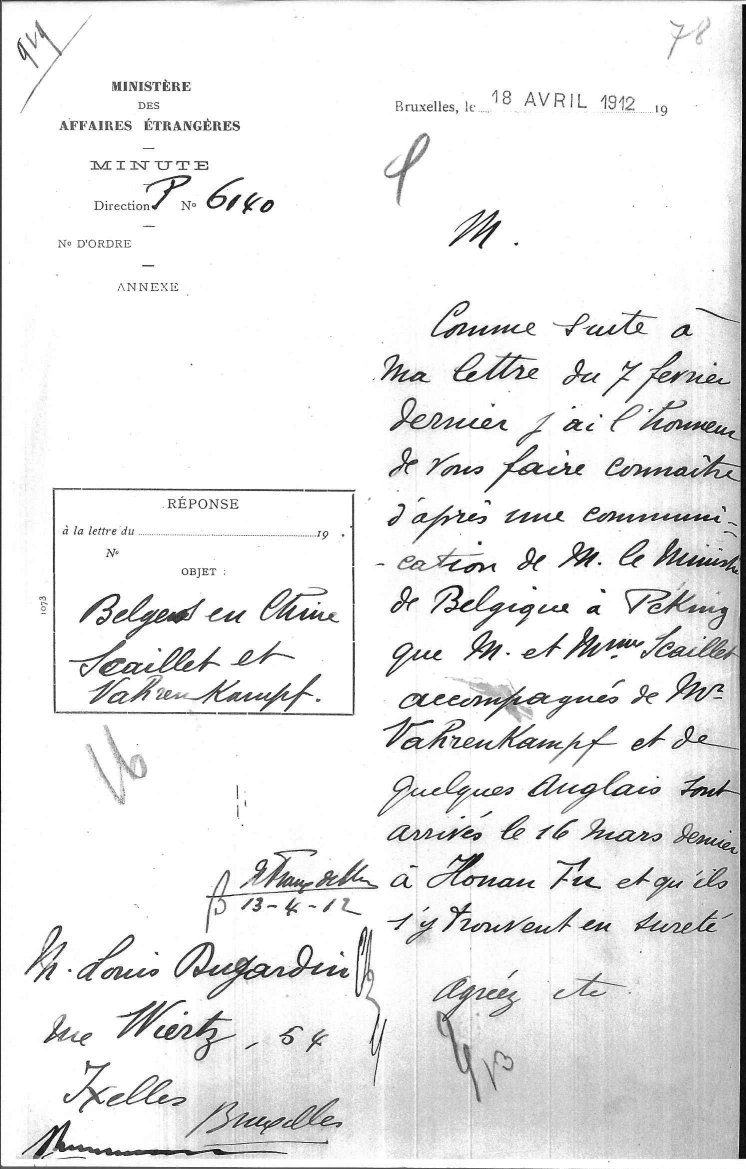 919
78
MINISTÈRE
DES
AFFAIRES ÉTRANGÈRES
MINUTE
Direction P No 6140
No D'ORDRE
ANNEXE
Bruxelles, le 18 AVRIL 1912 19
M.
Comme suite à
Ma lettre du 7 fevrier
dernier j'ai l'honneur
de vous faire connaître
d'après une communi-
-cation de M. le Ministre
de Belgique à Péking
que M. et Mme Scaillet
accompagnés de Mr
VahrenKampf et de
quelques Anglais sont
arrivés le 16 Mars dernier
à Honan Fu et qu'ils
s'y trouvent en sureté
Agréez etc
RÉPONSE
à la lettre du 19 .
No
OBJET :
Belges en Chine
Scaillet et
VahrenKampf.
1073
16
13-4-12
M. Louis Dujardin
rue Wiertz, 54
Ixelles
Bruxelles